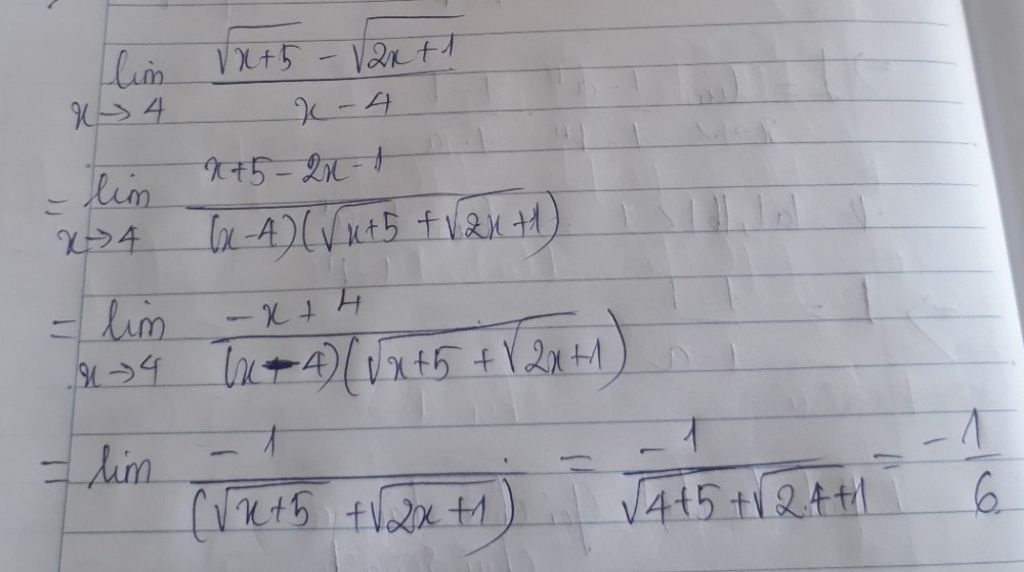 lim x→4 (√(x+5) - √(2x+1)) / (x - 4)
= lim x→4 (x+5-2x-1) / ((x-4)(√(x+5) + √(2x+1)))
= lim x→4 (-x+4) / ((x-4)(√(x+5) + √(2x+1)))
= lim -1 / (√(x+5) + √(2x+1)) = -1 / (√(4+5) + √(2.4+1)) = -1/6